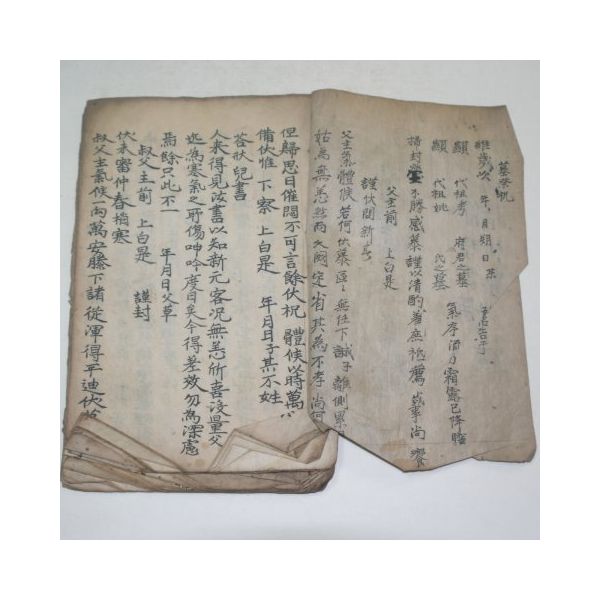 墓祭祝
維歲次 年 月 朔日 某 孝子
顯 代祖考 府君之墓
顯 代祖妣 氏之墓 氣序流易 霜露已降 瞻
掃封塋 不勝感慕 謹以清酌 庶 祗薦 歲事 尚 饗
父主前 上白是
謹伏問新
父主氣體候若何 伏慕區區 無任下誠 子 離側累
姑爲無恙 然而久闕定省 其爲不孝 尚何
但歸思日催 闊不可言 餘伏祝 體候以時萬
備伏惟 下察 上白是 年月日子某不姓
答狀兒書
人來得見汝書 以知新元客況無恙 所喜沒量 父
迄爲寒氣之所傷 呻吟度日矣 今得差效 勿爲深慮
焉 餘只此 不一 年月日父草
叔父主前 上白是 謹封
伏未審仲春稍寒
叔父主氣候一向萬安 膝下諸從渾得平迪 伏